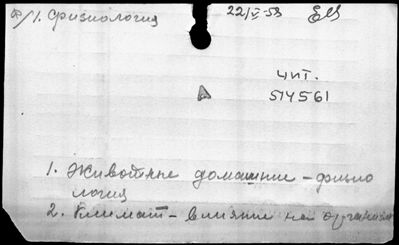 Ф/1. Физиология
22/V-53
чит.
514561
1. Животные домашние - физио
логия
2. Климат - влияние на организм